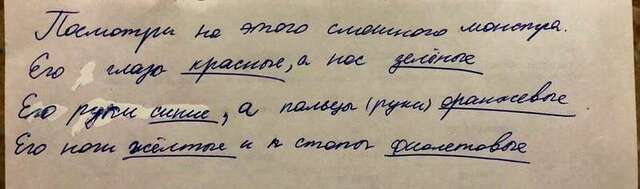 Посмотри на этого смешного монстра.
Его глаза красные, а нос зелёные
Его руки синие, а пальцы (руки) оранжевые.
Его ноги жёлтые и стопы фиолетовые